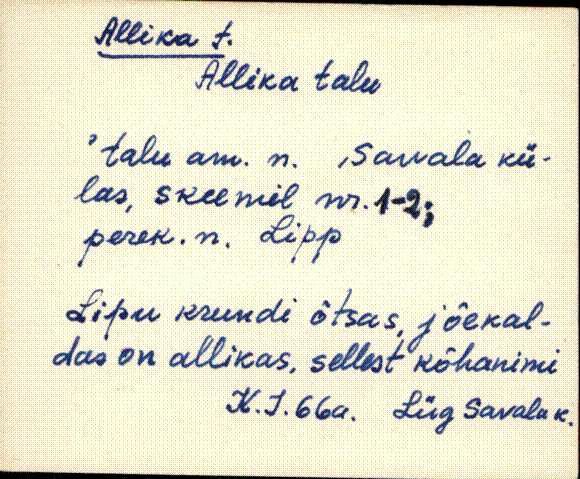 Allika t.
Allika talu
’talu am. n. , Savala kü-
las, skeemil nr. 1-2;
perek. n. Lipp
Lipu krundi õtsas, jõekal-
das on allikas, sellest kõhanimi
K.J. 66a. Lüg Savala k.